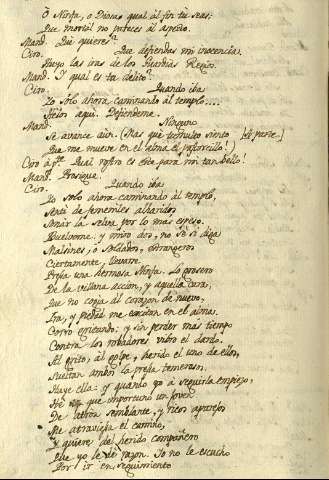 O Ninfa, o Diosa qual al fin tu seas:
Que mortal no pareces al aspecto.
Mand. Que quieres?
Ciro. Que defiendas mi inocencia.
Huyo las iras de los Guardias Regios.
Mand. Y qual es tu delito?
Ciro. Quando iba
Yo solo ahora caminando al templo....
Helos aqui. Defiendeme.
Mand. Ninguno
Se avance aun. (Mas què tumulto siento
Que me mueve en el alma el pastorcillo!)
Ciro à pte. Qual rostro es este para mi tan bello!
Mand. Prosigue.
Ciro. Quando iba
Yo solo ahora caminando al templo,
Senti de femeniles alharidos
Sonar la selva por lo mas espeso.
Vuelvome, y miro dos, no sè si diga
Malsines, o Soldados, extrangeros
Ciertamente, llevarse
Presa una hermosa Ninfa. Lo grosero
De la villana accion, y aquella cara,
Que no copia del corazon de nuevo,
Ira, y piedad me excitan en el alma.
Corro gritando; y sin perder mas tiempo
Contra los robadores vibro el dardo.
Al grito, al golpe, herido el uno de ellos,
Sueltan ambos la presa temerosos.
Huye ella: y quando yo à seguirla empiezo,
que importuno un joven
De ladron semblante, y ricos aparejos
Me atraviesa el camino,
Y quiere del herido compañero
Que yo le dè razon. Yo no le escucho
Por ir en seguimiento